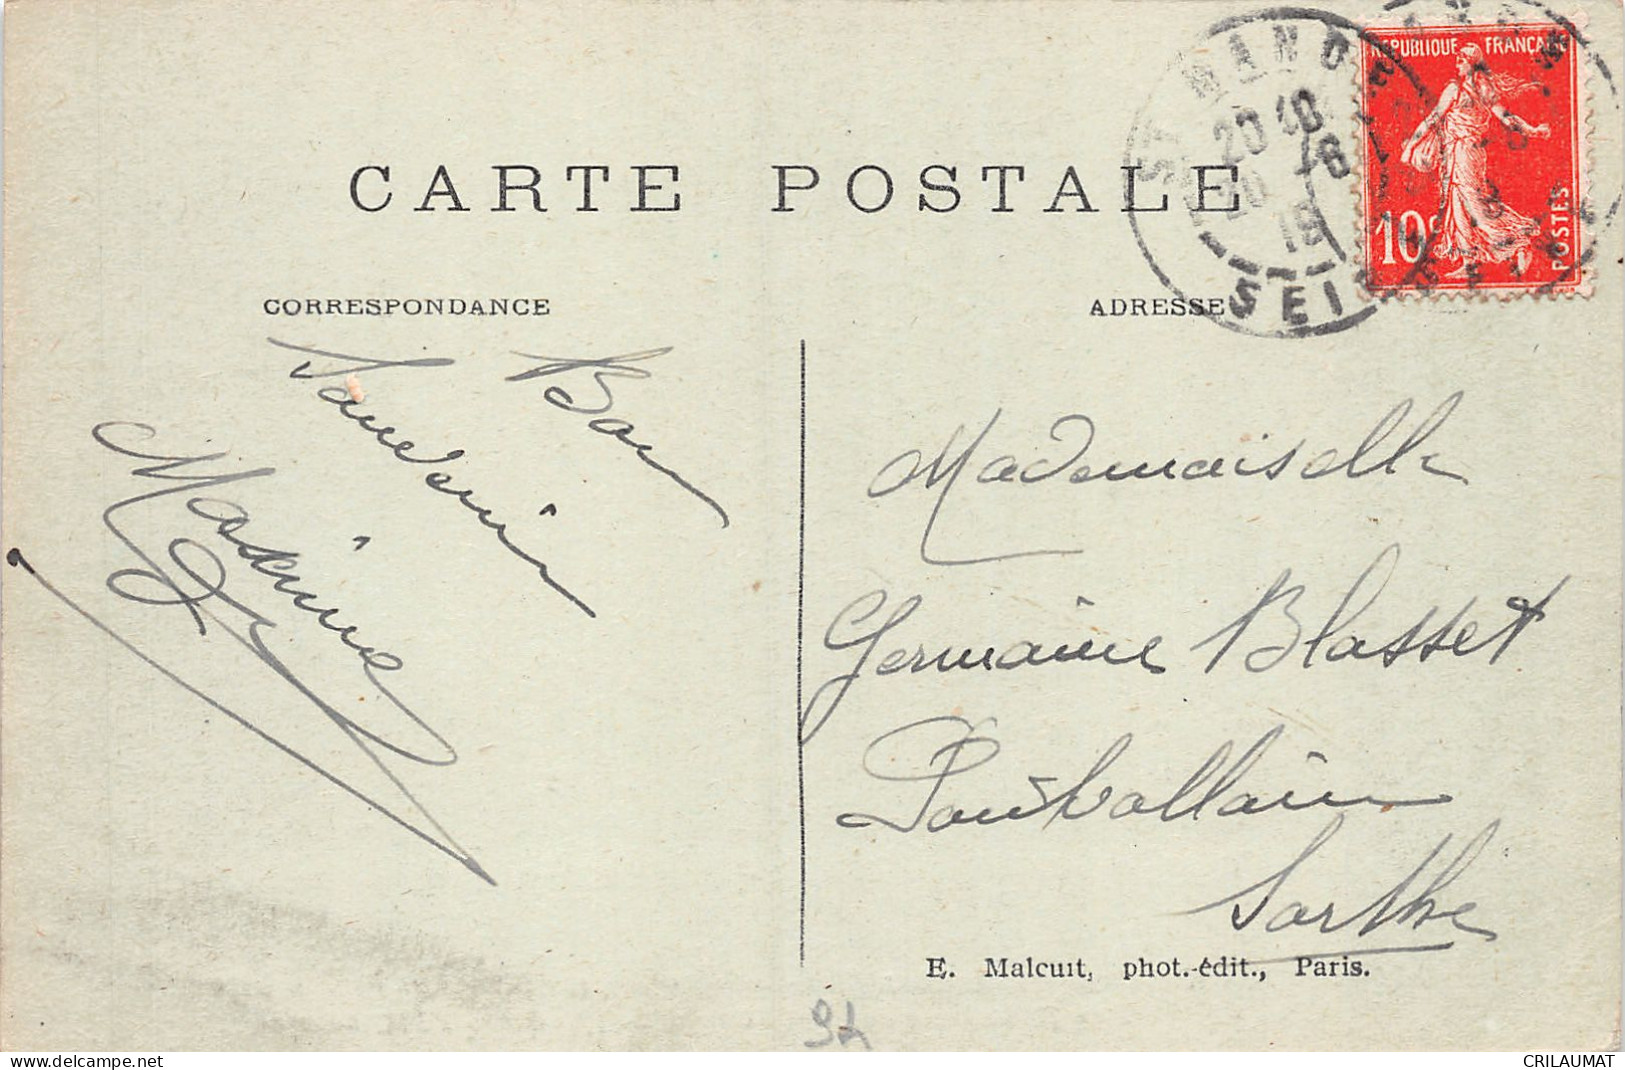 CARTE POSTALE
RÉPUBLIQUE FRANÇAISE
10c
POSTES
ST MAND
20 10
-8
20
19
SEI
CORRESPONDANCE
ADRESSE
Bon
Souvenir
Maxime
Mademoiselle
Germaine Blasset
Pontvallain
Sarthe
E. Malcuit, phot.-édit., Paris.
94
www.delcampe.net
CRILAUMAT